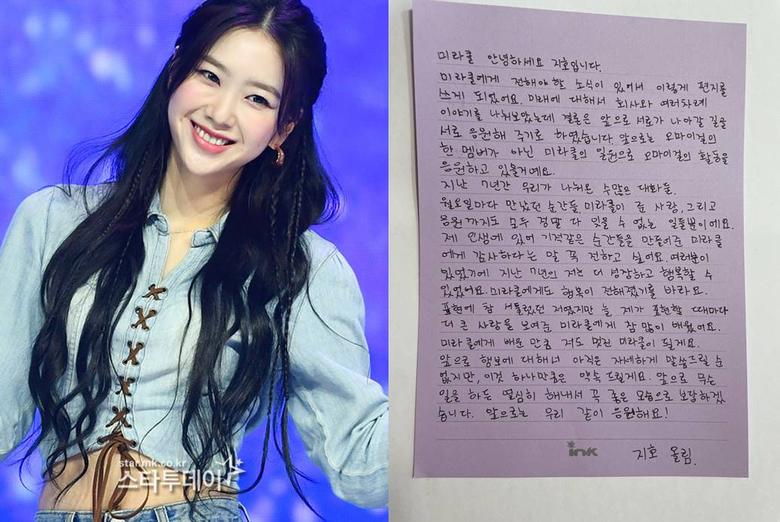 star.mk.co.kr
스타투데이
미라클 안녕하세요 지호입니다.
미라클에게 전해야 할 소식이 있어서 이렇게 편지를
쓰게 되었어요. 미래에 대해서 회사와 여러차례
이야기를 나눠보았는데 결론은 앞으로 서로가 나아갈 길을
서로 응원해 주기로 하였습니다. 앞으로는 오마이걸의
한 멤버가 아닌 미라클의 일원으로 오마이걸의 활동을
응원하고 있을거예요.
지난 7년간 우리가 나눠온 수많은 대화들.
월요일마다 만났던 순간들, 미라클이 준 사랑, 그리고
응원까지도 모두 정말 다 잊을 수 없는 일들뿐이에요.
제 인생에 있어 기적같은 순간들을 만들어준 미라클
에게 감사하다는 말 꼭 전하고 싶어요. 여러분이
있었기에 지난 7년의 저는 더 성장하고 행복할 수
있었어요. 미라클에게도 행복이 전해졌기를 바라요.
표현에 참 서툴렀던 저였지만 늘 제가 표현할 때마다
더 큰 사랑을 보여준 미라클에게 참 많이 배웠어요.
미라클에게 배운 만큼 저도 멋진 미라클이 될게요.
앞으로 행보에 대해서 아직은 자세하게 말씀드릴 순
없지만, 이것 하나만큼은 약속 드릴게요. 앞으로 무슨
일을 하든 열심히 해내서 꼭 좋은 모습으로 보답하겠
습니다. 앞으로는 우리 같이 응원해요!
ink
지호 올림.